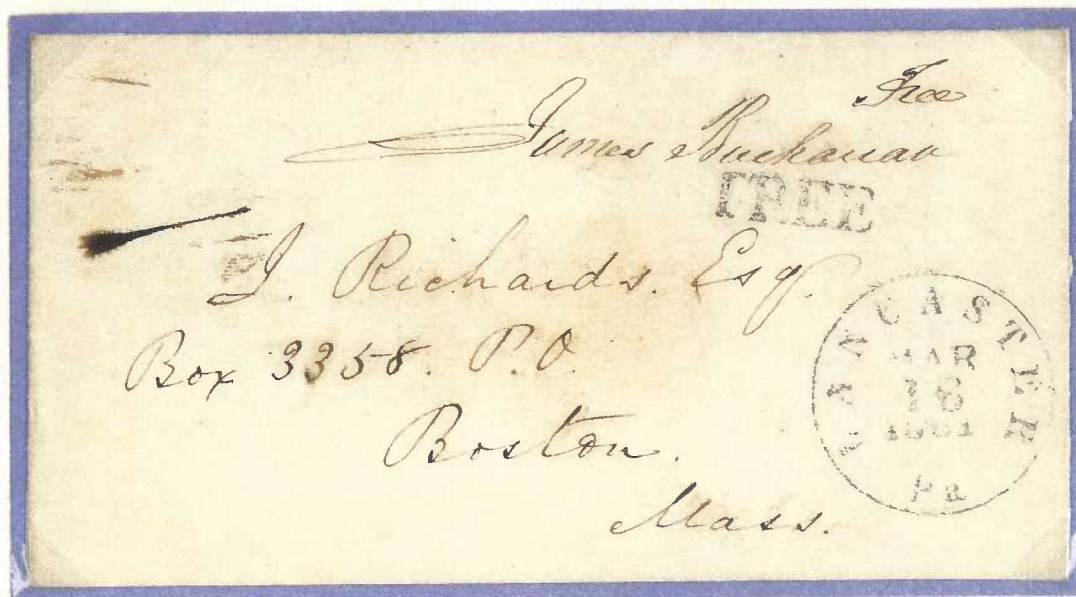 Free
James Buchanan
FREE
J. Richards. Esq.
Box 3358. P.O.
Boston.
Mass.
LANCASTER
MAR
16
1861
Pa